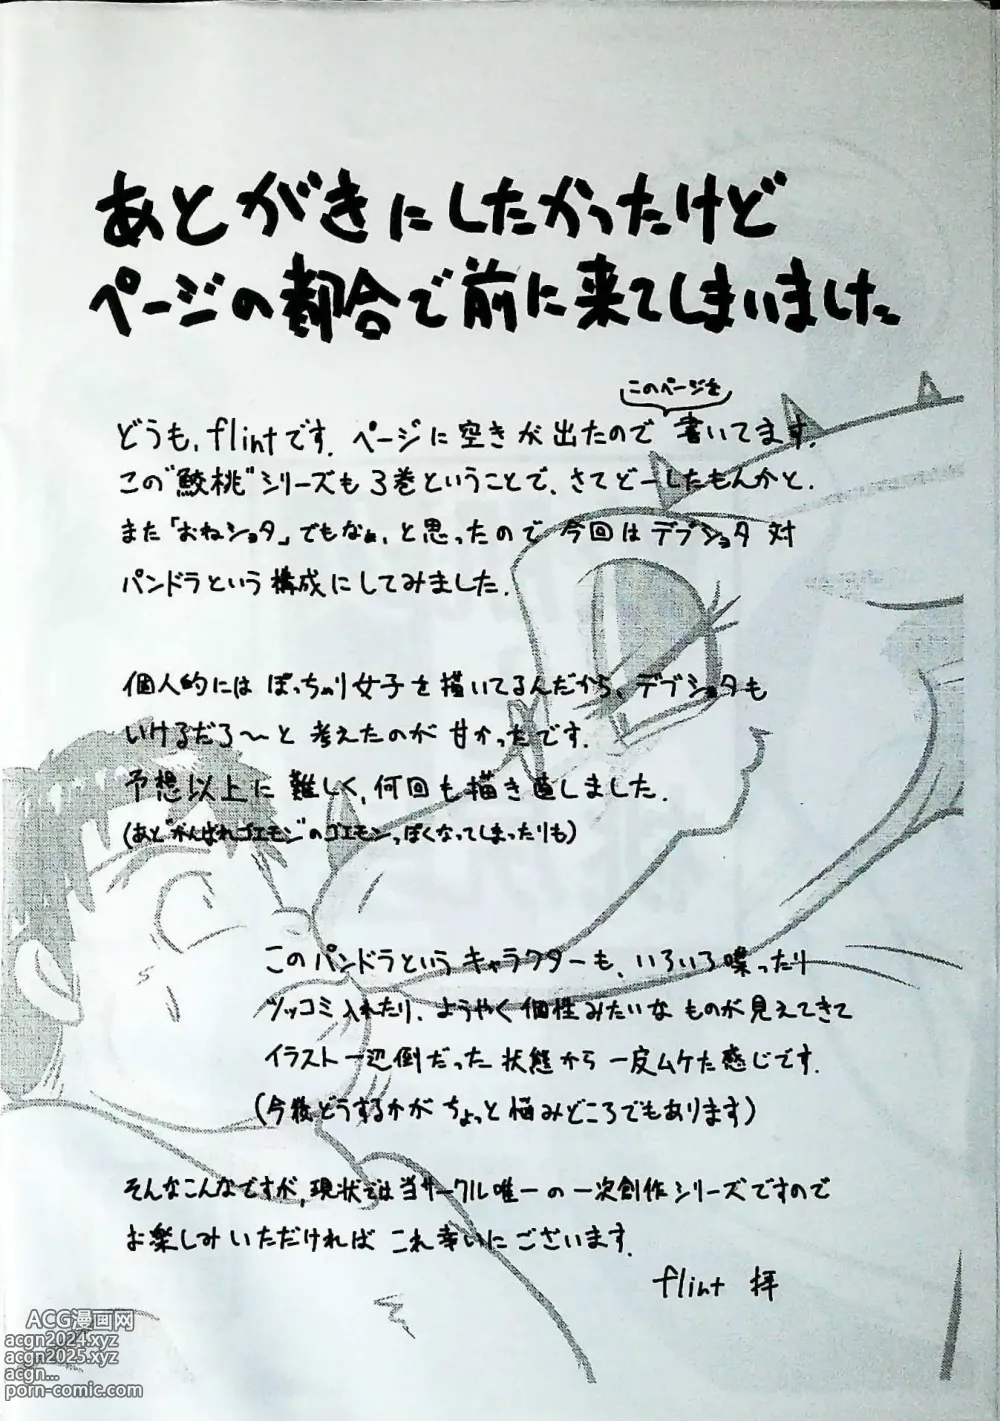 あとがきにしたかったけど
ページの都合で前に来てしまいました
このページを
どうも、flintです。ページに空きが出たので書いてます。
この"鮫桃"シリーズも3巻ということで、さてどーしたもんかと。
また「おねショタ」でもなぁ、と思ったので今回はデブショタ対
パンドラという構成にしてみました。
個人的にはぽっちゃり女子を描いてるんだから、デブショタも
いけるだろ〜と考えたのが甘かったです。
予想以上に難しく、何回も描き直しました。
(あと"がんばれゴエモン"のゴエモンっぽくなってしまったりも)
このパンドラというキャラクターも、いろいろ喋ったり
ツッコミ入れたり、ようやく個性みたいなものが見えてきて
イラスト一辺倒だった状態から一皮ムケた感じです。
(今後どうするかがちょっと悩みどころでもあります)
そんなこんなですが、現状では当サークル唯一の一次創作シリーズですので
お楽しみいただければこれ幸いにございます。
flint 拝
ACG漫画网
acgn2024.xyz
acgn2025.xyz
acgn...
porn-comic.com